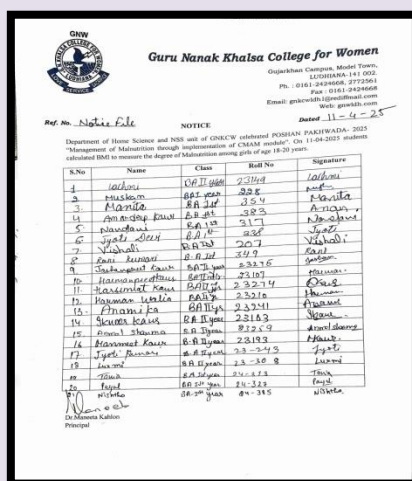 GNW
Guru Nanak Khalsa College for Women
Gujarkhan Campus, Model Town,
LUDHIANA-141 002.
Ph. : 0161-2424668, 2772561
Fax : 0161-2424668
Email: gnkcwldh1@rediffmail.com
Web: gcwldh.com
Ref. No. Notice File
Dated 11-4-25
NOTICE
Department of Home Science and NSS unit of GNKCW celebrated POSHAN PAKHWADA- 2025
"Management of Malnutrition through implementation of CMAM module". On 11-04-2025 students
calculated BMI to measure the degree of Malnutrition among girls of age 18-20 years.
S.No Name Class Roll No Signature
1 BA II year 23149
2 Muskan BA I year 228
3. Manita BA Ist 354 Manita
4 Amandeep Kaur BA Ist 383
5 Nandani BA Ist 317 Nandani
6 Jyoti Devi B.A Ist Jyoti
7 Vishali BA Ist 207 Vishali
8 Rani Kumari B.A Ist 349 Rani
9 Kaur BA II year 23275
10 Harmanpreet Kaur 23107
11 Kaur BA II 23274
12. Harman Walia BA II 23210
13. Anamika BA II yr 23241
14 Kaur BA II year 23103
15 Anmol Sharma B.A II year 23259 Anmol Sharma
16 Manmeet Kaur B.A II year 23193
17 Jyoti Kumari BA II year 23-243 Jyoti
18 Luxmi BA II year 23-308 Luxmi
19 BA Ist year
20 Payal BA Ist year 24-327 Payal
21 Nishtha BA Ist year 24-385 Nishtha
Dr.Maneeta Kahlon
Principal